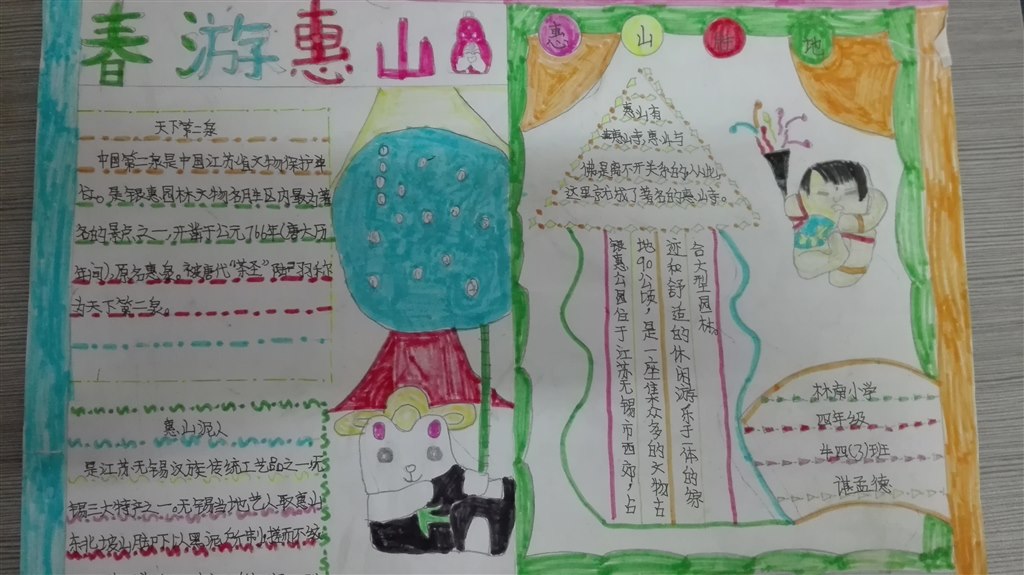 春游惠山
惠山胜地
天下第二泉
中国第二泉是中国江苏省文物保护单
位。是锡惠园林文物名胜区内最为著
名的景点之一,开凿于公元766年(唐大历
年间),原名惠泉。被唐代“茶圣”陆羽称
为天下第二泉。
惠山泥人
是江苏无锡汉族传统工艺品之一无
锡三大特产之一。无锡当地艺人取惠山
东北坡山脚下
惠山有
惠山寺,惠山与
佛是离不开关系的
这里就成了著名的惠山寺。
锡惠公园位于江苏无锡市西郊,占
地90公顷,是一座集众多的文物古
迹和舒适的休闲游乐于一体的综
合大型园林。
林南小学
四年级
四(3)班
谌孟德